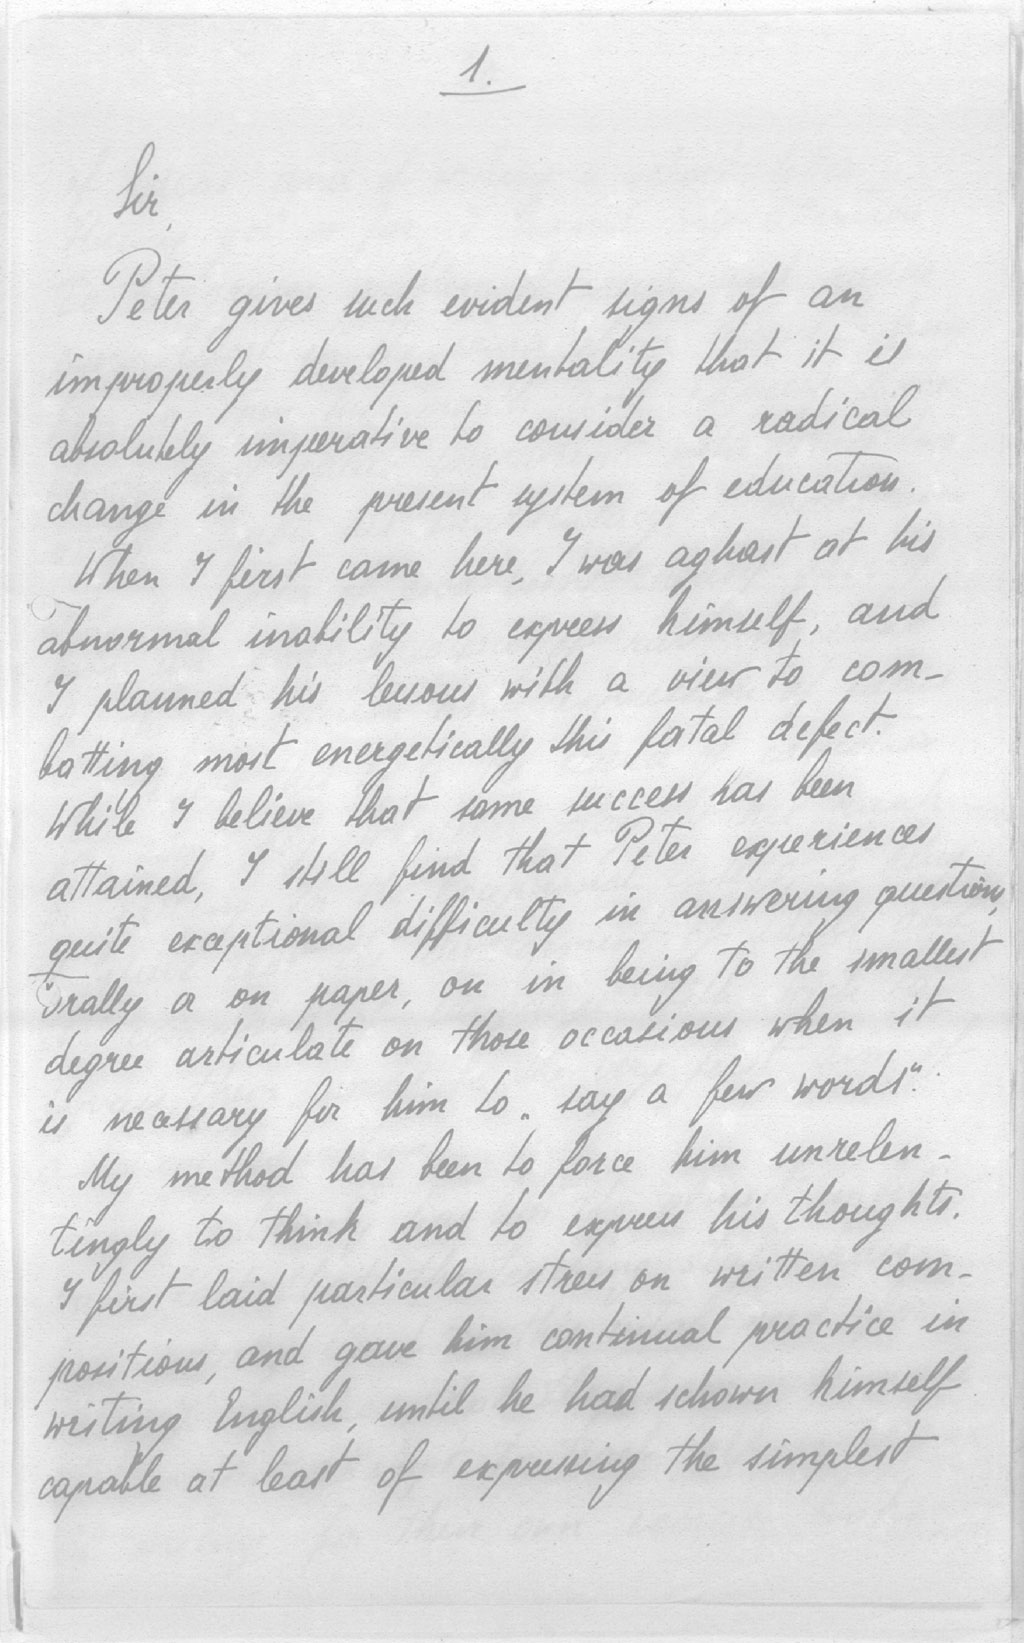 1.
Sir,
Peter gives such evident signs of an
improperly developed mentality that it is
absolutely imperative to consider a radical
change in the present system of education.
When I first came here, I was aghast at his
abnormal inability to express himself, and
I planned his lessons with a view to com-
batting most energetically this fatal defect.
While I believe that some success has been
attained, I still find that Peter experiences
quite exceptional difficulty in answering question,
orally or on paper, on in being to the smallest
degree articulate on those occasions when it
is necessary for him to „say a few words“.
My method has been to force him unrelen-
tingly to think and to express his thoughts.
I first laid particular stress on written com-
positions, and gave him continual practice in
writing English, until he had schown himself
capable at least of expressing the simplest